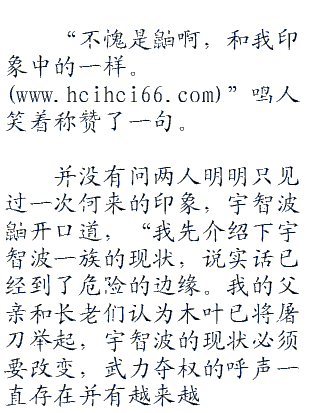 “不愧是鼬啊，和我印
象中的一样。
(www.hcihci66.com)”鸣人
笑着称赞了一句。
并没有问两人明明只见
过一次何来的印象，宇智波
鼬开口道，“我先介绍下宇
智波一族的现状，说实话已
经到了危险的边缘。我的父
亲和长老们认为木叶已将屠
刀举起，宇智波的现状必须
要改变，武力夺权的呼声一
直存在并有越来越